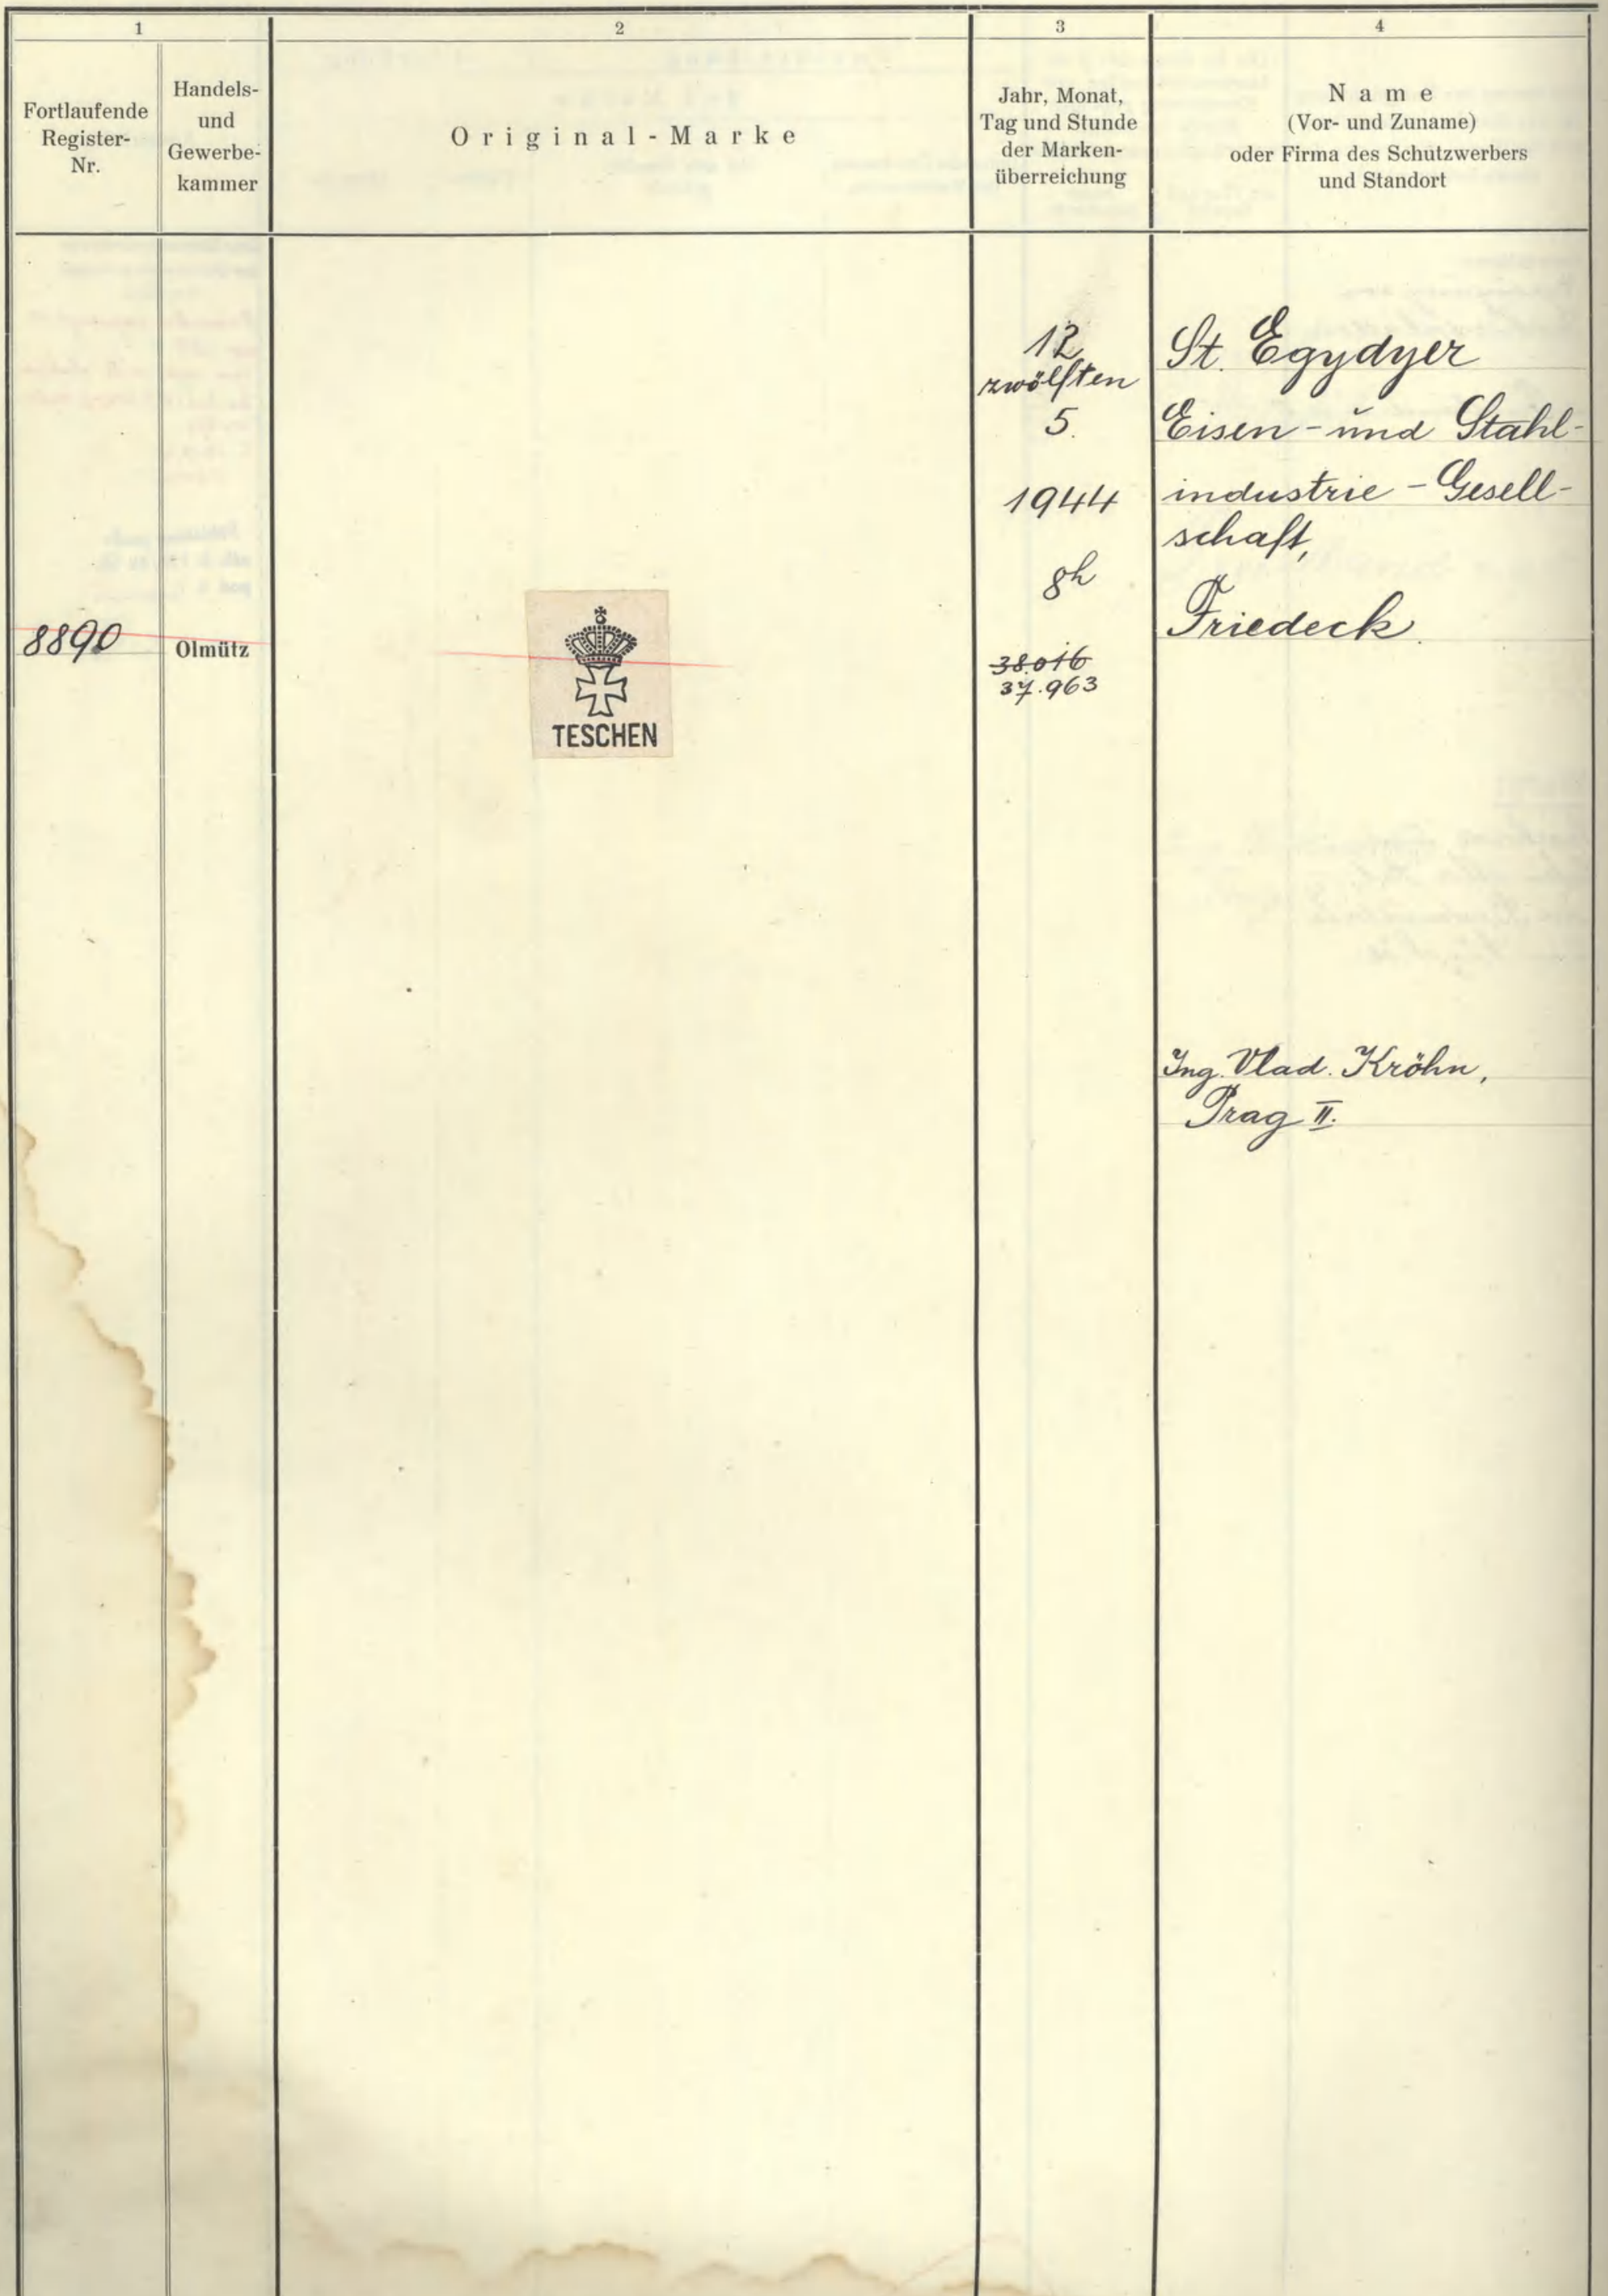 1
2
3
4
Fortlaufende
Register-
Nr.
Handels-
und
Gewerbe-
kammer
Original-Marke
Jahr, Monat,
Tag und Stunde
der Marken-
überreichung
Name
(Vor- und Zuname)
oder Firma des Schutzwerbers
und Standort
8890
Olmütz
TESCHEN
12
zwölften
5.
1944
8h
38.016
37.963
St. Egydyer
Eisen- und Stahl-
industrie - Gesell-
schaft,
Friedeck.
Ing. Vlad. Kröhn,
Prag II.